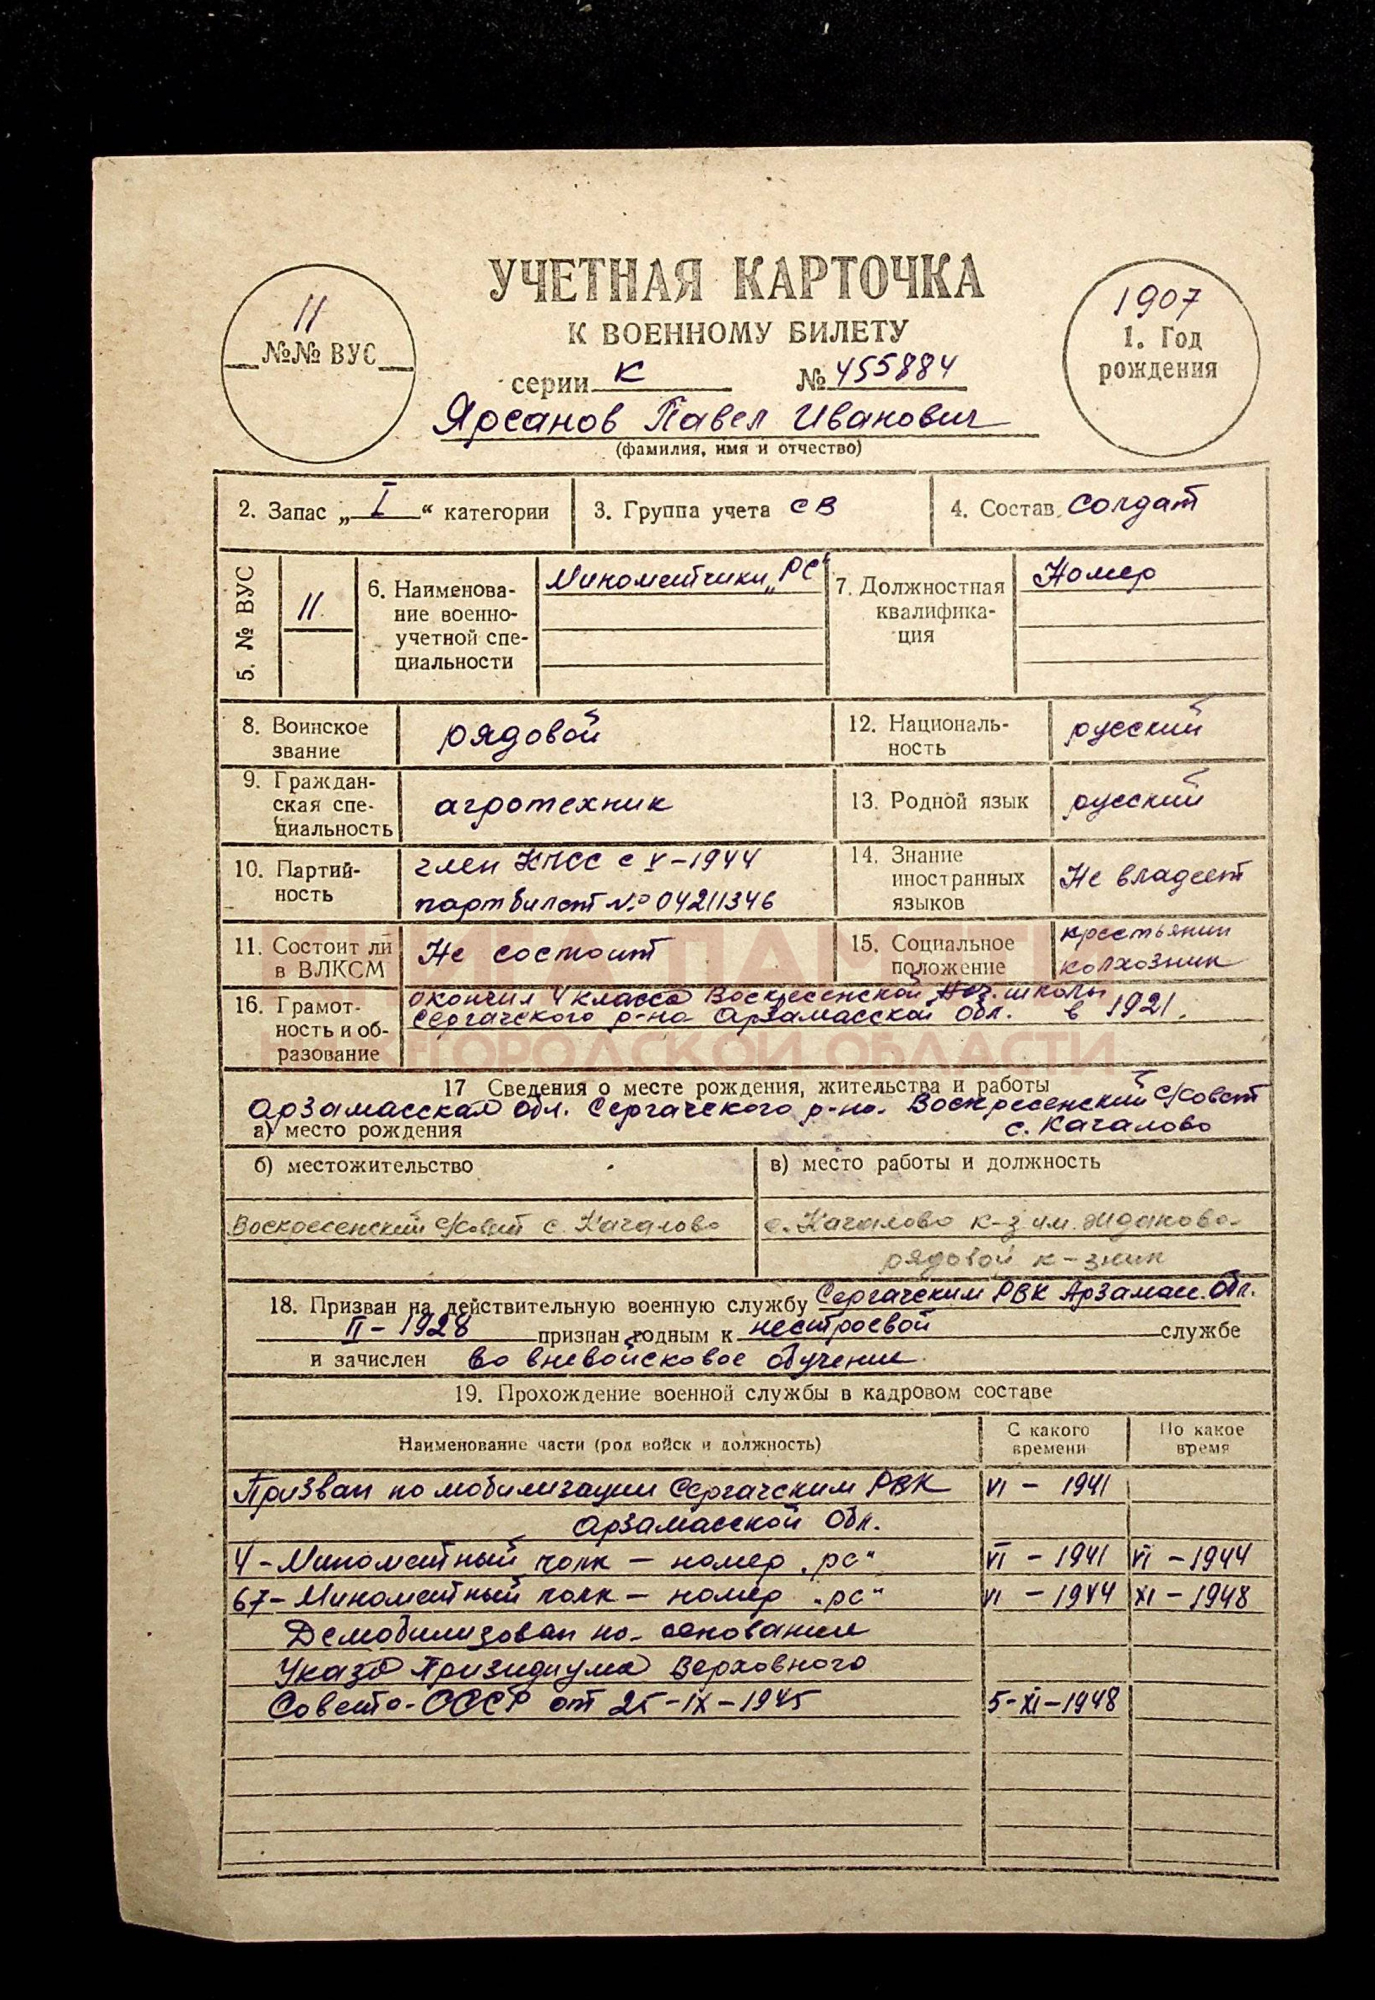 УЧЕТНАЯ КАРТОЧКА
К ВОЕННОМУ БИЛЕТУ
серии К № 455884
Ярсанов Павел Иванович
(фамилия, имя и отчество)
11
№№ ВУС
1907
1. Год
рождения
2. Запас „I“ категории
3. Группа учета СВ
4. Состав солдат
5. № ВУС
11
6. Наименова-
ние военно-
учетной спе-
циальности
Минометчики „РС“
7. Должностная
квалифика-
ция
Номер
8. Воинское
звание
рядовой
12. Националь-
ность
русский
9. Граждан-
ская спе-
циальность
агротехник
13. Родной язык
русский
10. Партий-
ность
член КПСС с V-1944
партбилет № 04211346
14. Знание
иностранных
языков
Не владеет
11. Состоит ли
в ВЛКСМ
Не состоит
15. Социальное
положение
крестьянин
колхозник
16. Грамот-
ность и об-
разование
окончил 4 класса Воскресенской нач. школы
Сергачского р-на Арзамасской обл. в 1921.
КНИГА ПАМЯТИ
НИЖЕГОРОДСКОЙ ОБЛАСТИ
17 Сведения о месте рождения, жительства и работы
Арзамасская обл. Сергачского р-на. Воскресенский с/совет
а) место рождения
с. Качалово
б) местожительство
Воскресенский с/совет с. Качалово
в) место работы и должность
с. Качалово к-з им. Жданова-
рядовой к-зник
18. Призван на действительную военную службу Сергачским РВК Арзамас. обл.
II-1928 признан годным к нестроевой службе
и зачислен во вневойсковое обучение.
19. Прохождение военной службы в кадровом составе
Наименование части (род войск и должность)
С какого
времени
По какое
время
Призван по мобилизации Сергачским РВК VI - 1941
Арзамасской обл.
4-Минометный полк - номер „рс“ VI - 1941 VI - 1944
67-Минометный полк - номер „рс“ VI - 1944 XI - 1948
Демобилизован на основании
Указа Призидиума Верховного
Совета СССР от 25-IX-1945 5-XI-1948